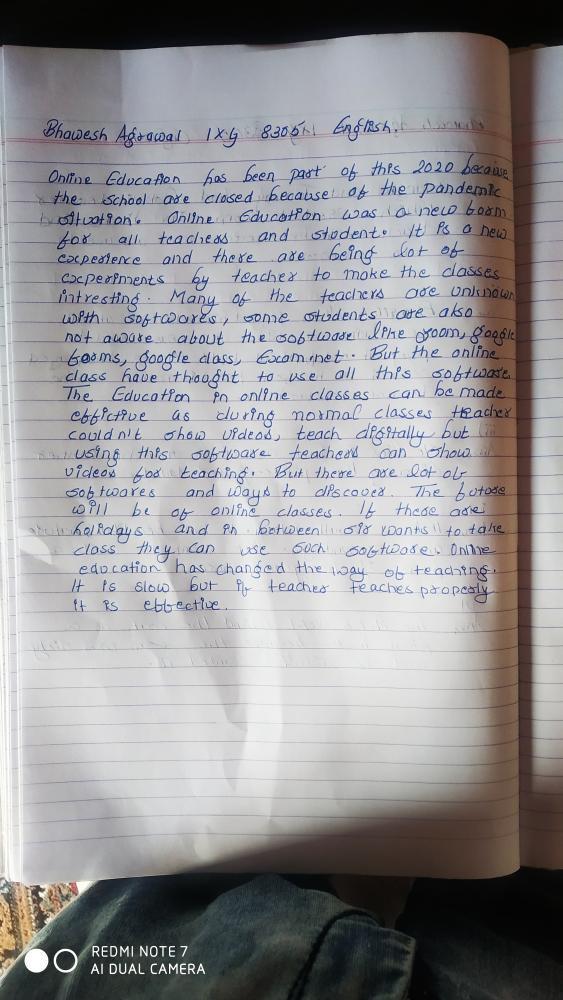 Bhawesh Agrawal IXG 8305 English.
Online Education has been part of this 2020 because
the school are closed because of the pandemic
situation. Online Education was a new form
for all teachers and student. It is a new
experience and there are being lot of
experiments by teacher to make the classes
intresting. Many of the teachers are unknown
with softwares, some students are also
not aware about the software like zoom, google
forms, google class, Exam.net. But the online
class have thought to use all this software.
The Education in online classes can be made
effictive as during normal classes teacher
couldn't show videos, teach digitally but
using this software teachers can show
videos for teaching. But there are lot of
softwares and ways to discover. The future
will be of online classes. If there are
holidays and in between sir wants to take
class they can use such software. Online
education has changed the way of teaching.
It is slow but if teacher teaches properly
it is effective.
REDMI NOTE 7
AI DUAL CAMERA